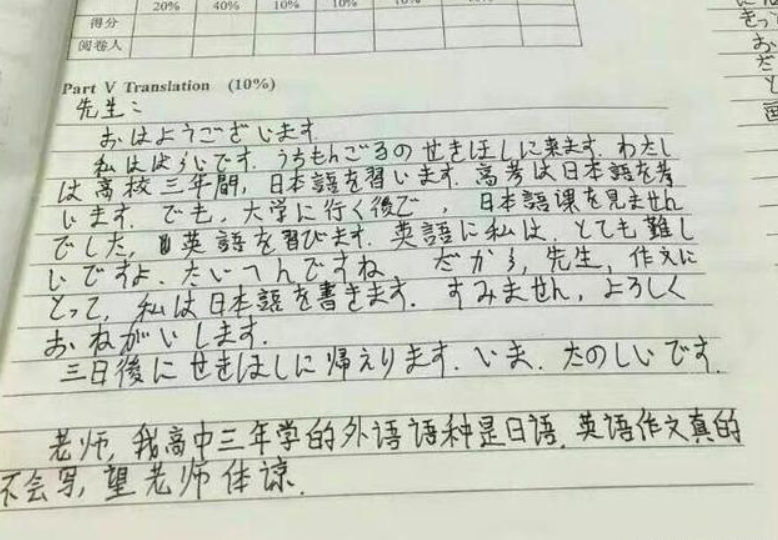 20% 40% 10% 10% 10%
得分
阅卷人
Part V Translation (10%)
先生：
おはようございます.
私ははらいです. うちもんごるの せきほしに来ます. わたし
は高校三年間, 日本語を習います. 高考は日本語を考
います. でも, 大学に行く後で, 日本語課を見ません
でした, 英語を習びます. 英語に私は, とても難し
いですよ. たいへんですね だから, 先生, 作文に
とって, 私は日本語を書きます. すみません, よろしく
おねがいします.
三日後にせきほしに帰えります. いま. たのしいです.
老师, 我高中三年学的外语语种是日语. 英语作文真的
不会写, 望老师体谅.